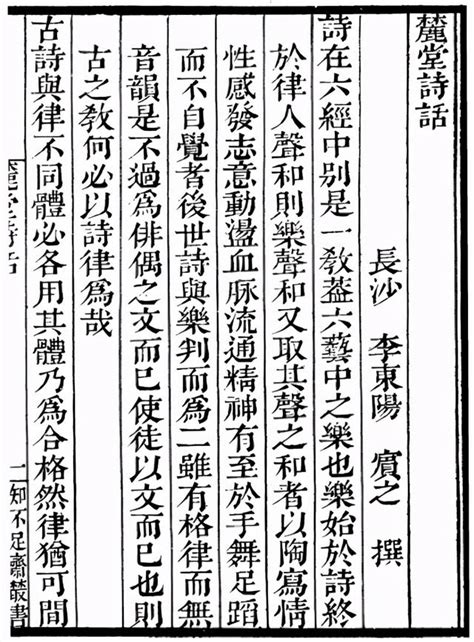 麓堂詩話
長沙 李東陽 賓之 撰
詩在六經中别是一敎葢六藝中之樂也樂始於詩終
於律人聲和則樂聲和又取其聲之和者以陶寫情
性感發志意動盪血脉流通精神有至於手舞足蹈
而不自覺者後世詩與樂判而爲二雖有格律而無
音韻是不過爲俳偶之文而已使徒以文而已也則
古之敎何必以詩律爲哉
古詩與律不同體必各用其體乃爲合格然律猶可間
麓堂詩話
一知不足齋叢書